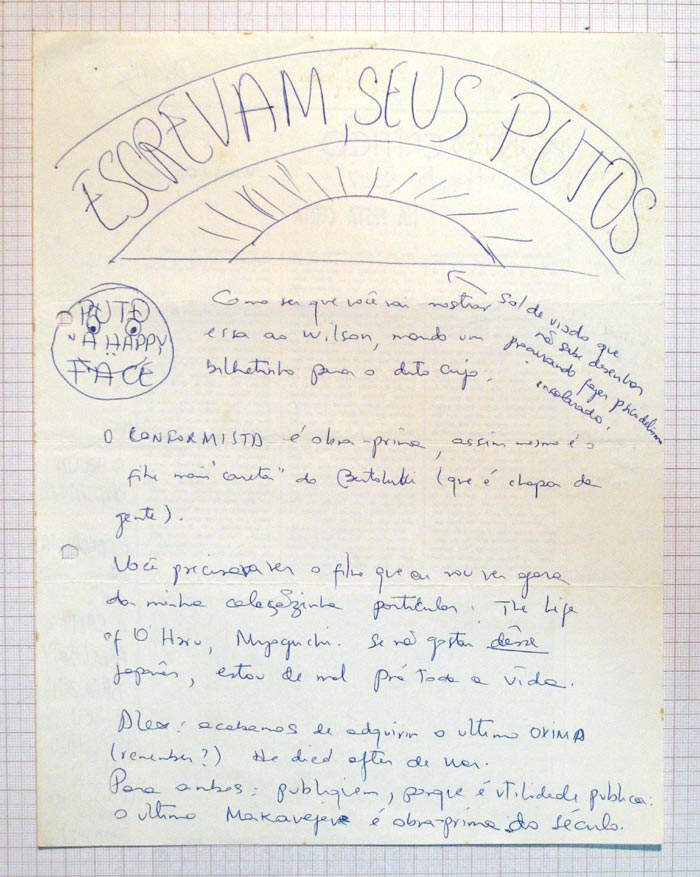 ESCREVAM, SEUS PUTOS
PUTO
"A HAPPY
FACE
Como sei que você vai mostrar
essa ao Wilson, mando um
bilhetinho para o dito cujo.
Sol de viado que
não sabe desenhar
procurando fazer
ensolarado!
O CONFORMISTA é obra-prima, assim mesmo é o
filme mais "careta" do Bertolukki (que é chapa da
gente).
Você precisava ver o filme que eu vou ver agora
da minha coleçãozinha particular: The Life
of O'Haru, Mizoguchi. Se não gostar dêsse
japonês, estou de mal prá toda a vida.
Alex: acabamos de adquirir o ultimo OXIMA
(remember?) He died after de war.
Para ambos: publiquem, porque é utilidade publica:
o ultimo Makavejev é obra-prima do século.